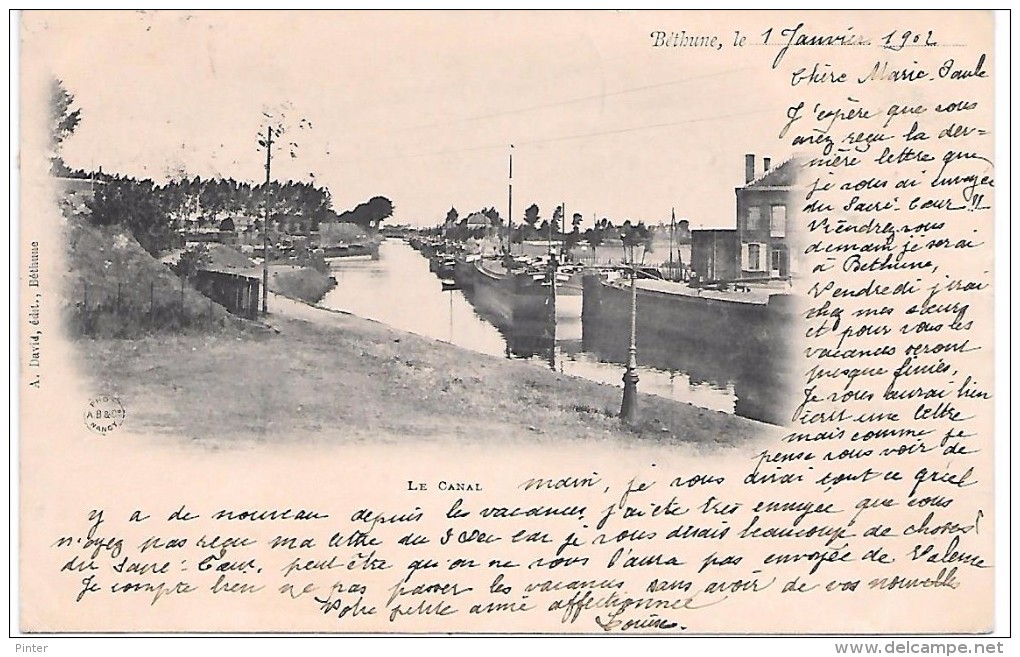 Béthune, le 1 Janvier 1902
Chère Marie-Paule
J'espère que vous
avez reçu la der-
nière lettre que
je vous ai envoyée
du Sacré-Cœur!!
Viendrez vous
demain, je serai
à Béthune,
Vendredi j'irai
chez mes sœurs
et pour vous les
vacances seront
presque finies,
Je vous aurai bien
écrit une lettre
mais comme je
pense vous voir de
main, je vous dirai tout ce qu'il
y a de nouveau depuis les vacances, j'ai été très ennuyée que vous
n'ayez pas reçu ma lettre du 3 Déc car je vous disais beaucoup de choses
du Sacré-Cœur, peut être qu'on ne vous l'aura pas envoyée de
Je compte bien ne pas passer les vacances sans avoir de vos nouvelles
Votre petite amie affectionnée
LE CANAL
A. David, édit., Béthune
PHOT
A.B & Cie
NANCY
Pinter
www.delcampe.net